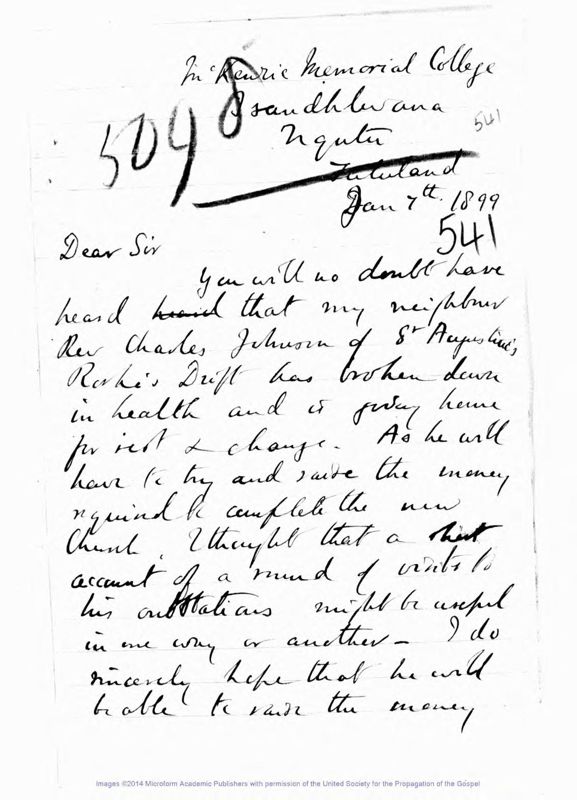 McKenzie Memorial College
Isandhlwana
Nqutu
Zululand
5098
541
Jan 7th. 1899
541
Dear Sir
You will no doubt have
heard heard that my neighbour
Rev Charles Johnson of St Augustine's
Rorke's Drift has broken down
in health and is going home
for rest & change. As he will
have to try and raise the money
required to complete the new
Church, I thought that a short
account of a round of visits to
his outstations might be useful
in one way or another - I do
sincerely hope that he will
be able to raise the money
Images ©2014 Microform Academic Publishers with permission of the United Society for the Propagation of the Gospel